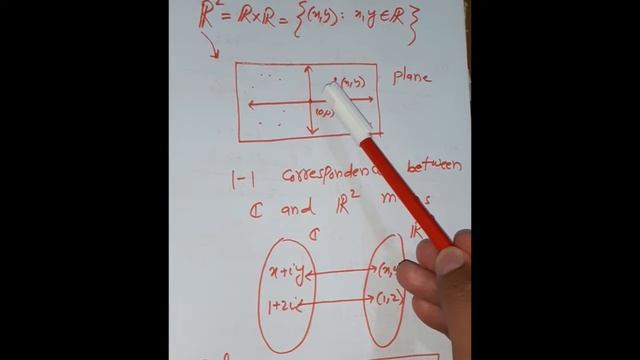 ℝ² = ℝ×ℝ = {(x,y) : x,y ∈ ℝ}
(x,y) plane
(0,0)
1-1 correspondence between
ℂ and ℝ²
ℂ ℝ
x+iy
1+2i (1,2)